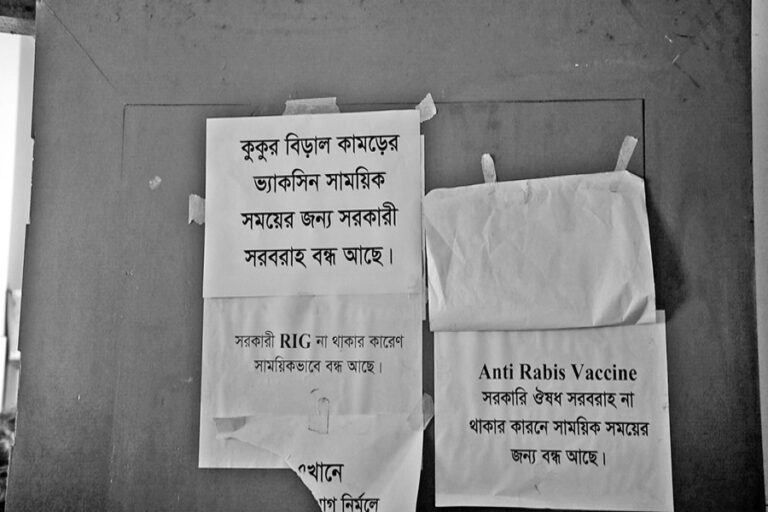 কুকুর বিড়াল কামড়ের
ভ্যাকসিন সাময়িক
সময়ের জন্য সরকারী
সরবরাহ বন্ধ আছে।
সরকারী RIG না থাকার কারেণ
সাময়িকভাবে বন্ধ আছে।
নির্মূলে
Anti Rabis Vaccine
সরকারি ঔষধ সরবরাহ না
থাকার কারনে সাময়িক সময়ের
জন্য বন্ধ আছে।